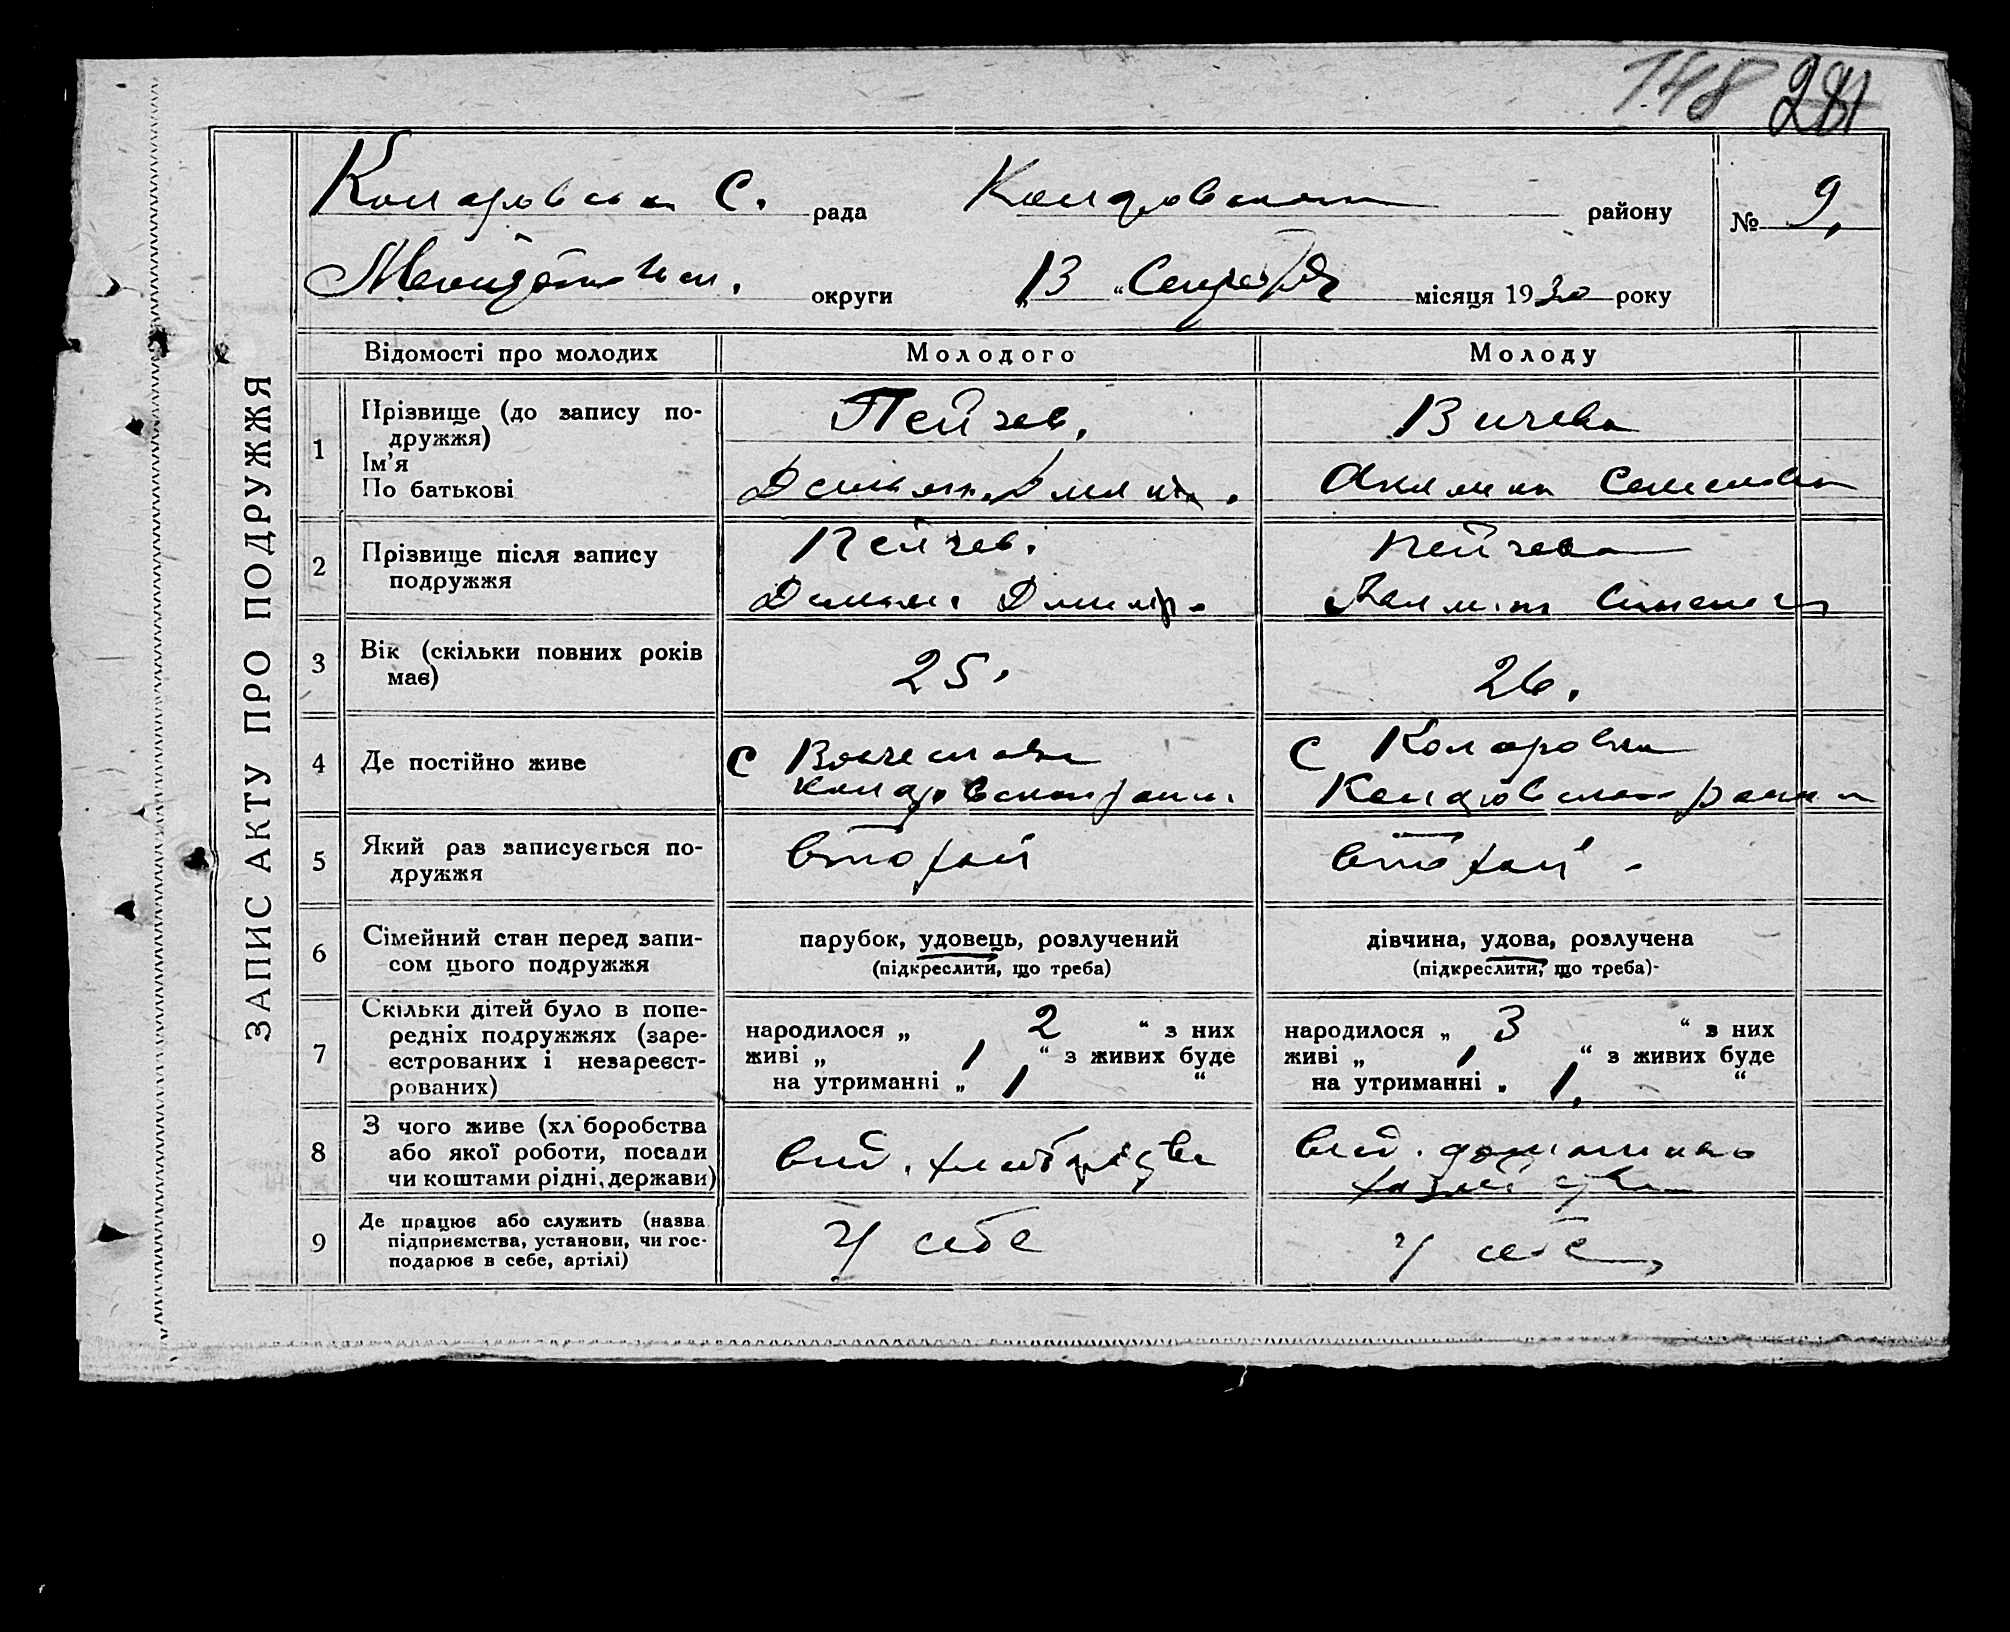 148 281
ЗАПИС АКТУ ПРО ПОДРУЖЖЯ
Коларовська С. рада Коларовського району № 9.
округи „13“ місяця 1930 року
Відомості про молодих Молодого Молоду
1 Прізвище (до запису по-
дружжя)
Ім’я
По батькові
Пейчев.
Вичева
2 Прізвище після запису
подружжя
Пейчев.
Пейчева
3 Вік (скільки повних років
має)
25.
26.
4 Де постійно живе
С
С Коларовка
Коларовского района
5 Який раз записується по-
дружжя
второй
второй
6 Сімейний стан перед запи-
сом цього подружжя
парубок, удовець, розлучений
(підкреслити, що треба)
дівчина, удова, розлучена
(підкреслити, що треба)
7 Скільки дітей було в попе-
редніх подружжях (заре-
єстрованих і незареєст-
рованих)
народилося „ 2 “ з них
живі „ 1 “ з живих буде
на утриманні „ 1 “
народилося „ 3 “ з них
живі „ 1 “ з живих буде
на утриманні „ 1. “
8 З чого живе (хліборобства
або якої роботи, посади
чи коштами рідні, держави)
від.
від. домашнього
9 Де працює або служить (назва
підприємства, установи, чи гос-
подарює в себе, артілі)
У себе
У себе